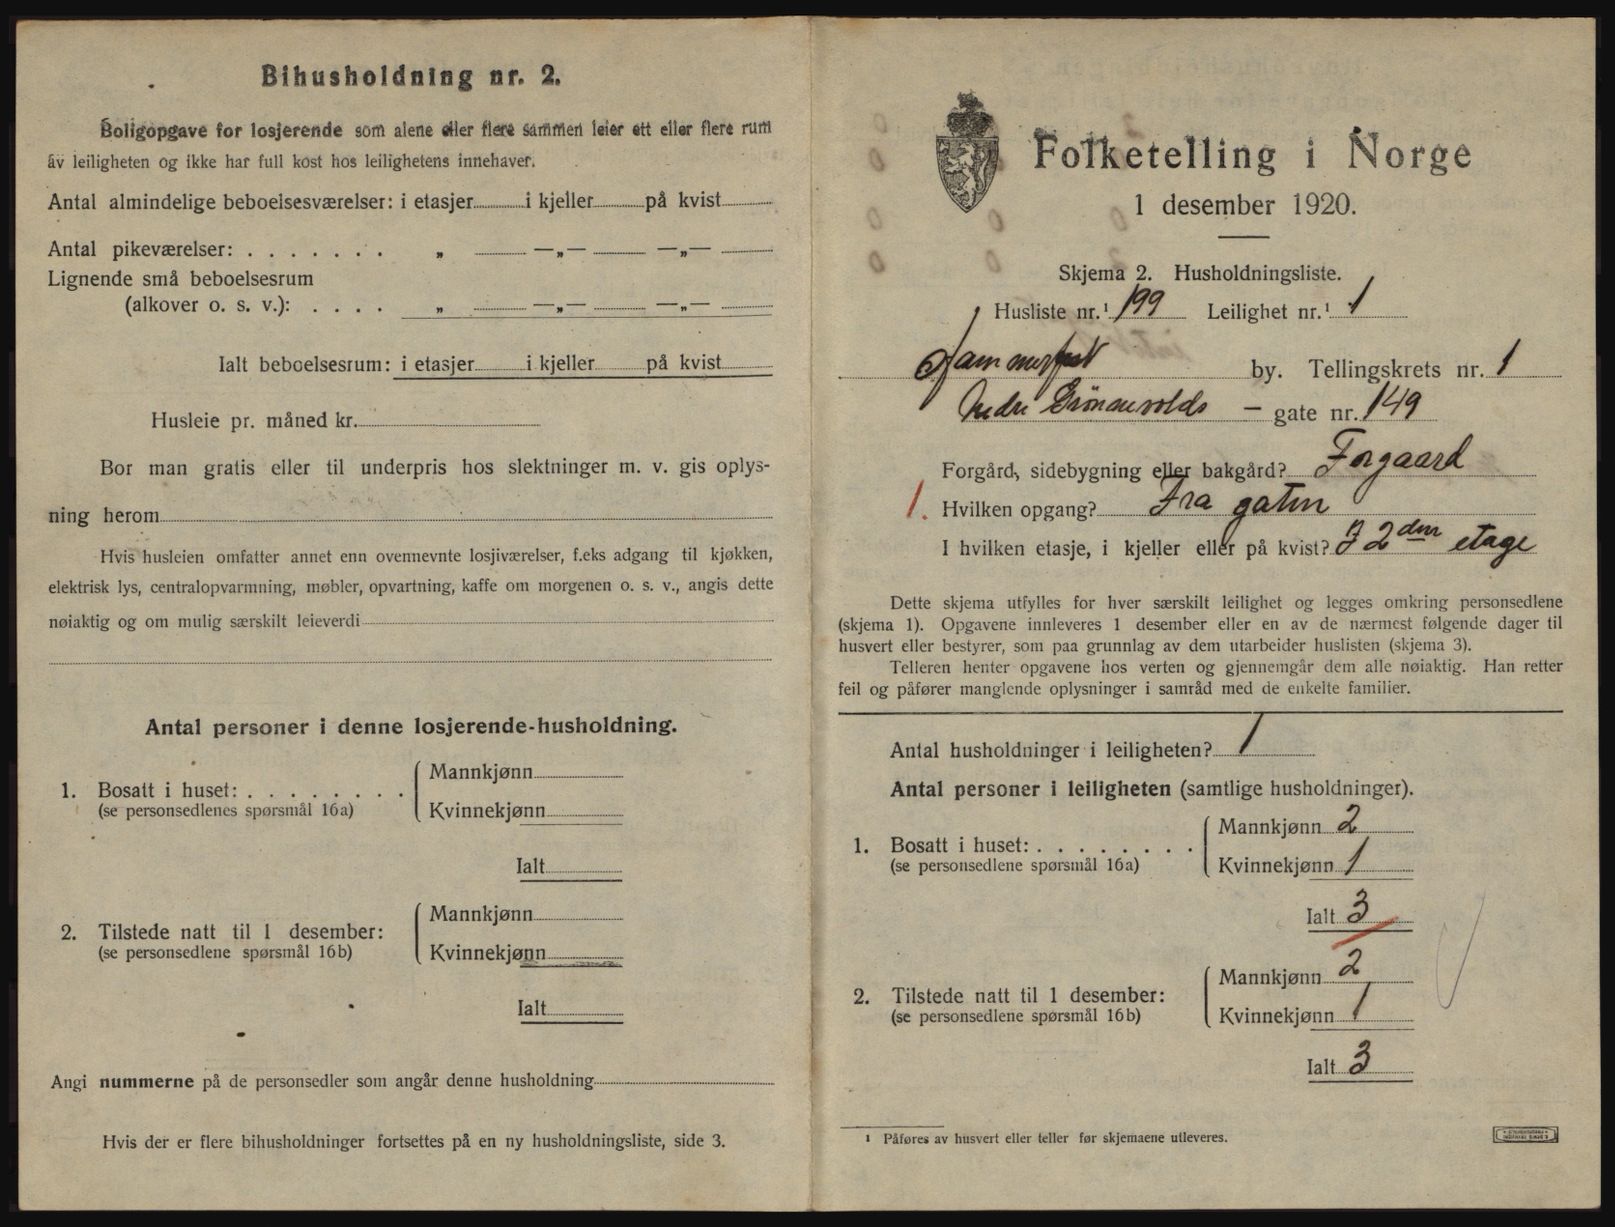 Bihusholdning nr. 2.
Boligopgave for losjerende som alene eller flere sammen leier ett eller flere rum
av leiligheten og ikke har full kost hos leilighetens innehaver.
Antal almindelige beboelsesværelser: i etasjer i kjeller på kvist
Antal pikeværelser: . . . . . . . „ —„— —„—
Lignende små beboelsesrum
(alkover o. s. v.): . . . . „ —„— —„—
Ialt beboelsesrum: i etasjer i kjeller på kvist
Husleie pr. måned kr.
Bor man gratis eller til underpris hos slektninger m. v. gis oplys-
ning herom
Hvis husleien omfatter annet enn ovennevnte losjiværelser, f.eks adgang til kjøkken,
elektrisk lys, centralopvarmning, møbler, opvartning, kaffe om morgenen o. s. v., angis dette
nøiaktig og om mulig særskilt leieverdi
Antal personer i denne losjerende-husholdning.
1. Bosatt i huset: . . . . . . . . Mannkjønn
(se personsedlenes spørsmål 16a) Kvinnekjønn
Ialt
2. Tilstede natt til 1 desember: Mannkjønn
(se personsedlene spørsmål 16b) Kvinnekjønn
Ialt
Angi nummerne på de personsedler som angår denne husholdning
Hvis der er flere bihusholdninger fortsettes på en ny husholdningsliste, side 3.
Folketelling i Norge
1 desember 1920.
Skjema 2. Husholdningsliste.
Husliste nr.¹ 199 Leilighet nr.¹ 1
Hammerfest by. Tellingskrets nr. 1
Nedre Grönnevolds — gate nr. 149
Forgård, sidebygning eller bakgård? Forgaard
1. Hvilken opgang? Fra gaten
I hvilken etasje, i kjeller eller på kvist? I 2den etage
Dette skjema utfylles for hver særskilt leilighet og legges omkring personsedlene
(skjema 1). Opgavene innleveres 1 desember eller en av de nærmest følgende dager til
husvert eller bestyrer, som paa grunnlag av dem utarbeider huslisten (skjema 3).
Telleren henter opgavene hos verten og gjennemgår dem alle nøiaktig. Han retter
feil og påfører manglende oplysninger i samråd med de enkelte familier.
Antal husholdninger i leiligheten? 1
Antal personer i leiligheten (samtlige husholdninger).
1. Bosatt i huset: . . . . . . . . Mannkjønn 2
(se personsedlene spørsmål 16a) Kvinnekjønn 1
Ialt 3
2. Tilstede natt til 1 desember: Mannkjønn 2
(se personsedlene spørsmål 16b) Kvinnekjønn 1
Ialt 3
¹ Påføres av husvert eller teller før skjemaene utleveres.